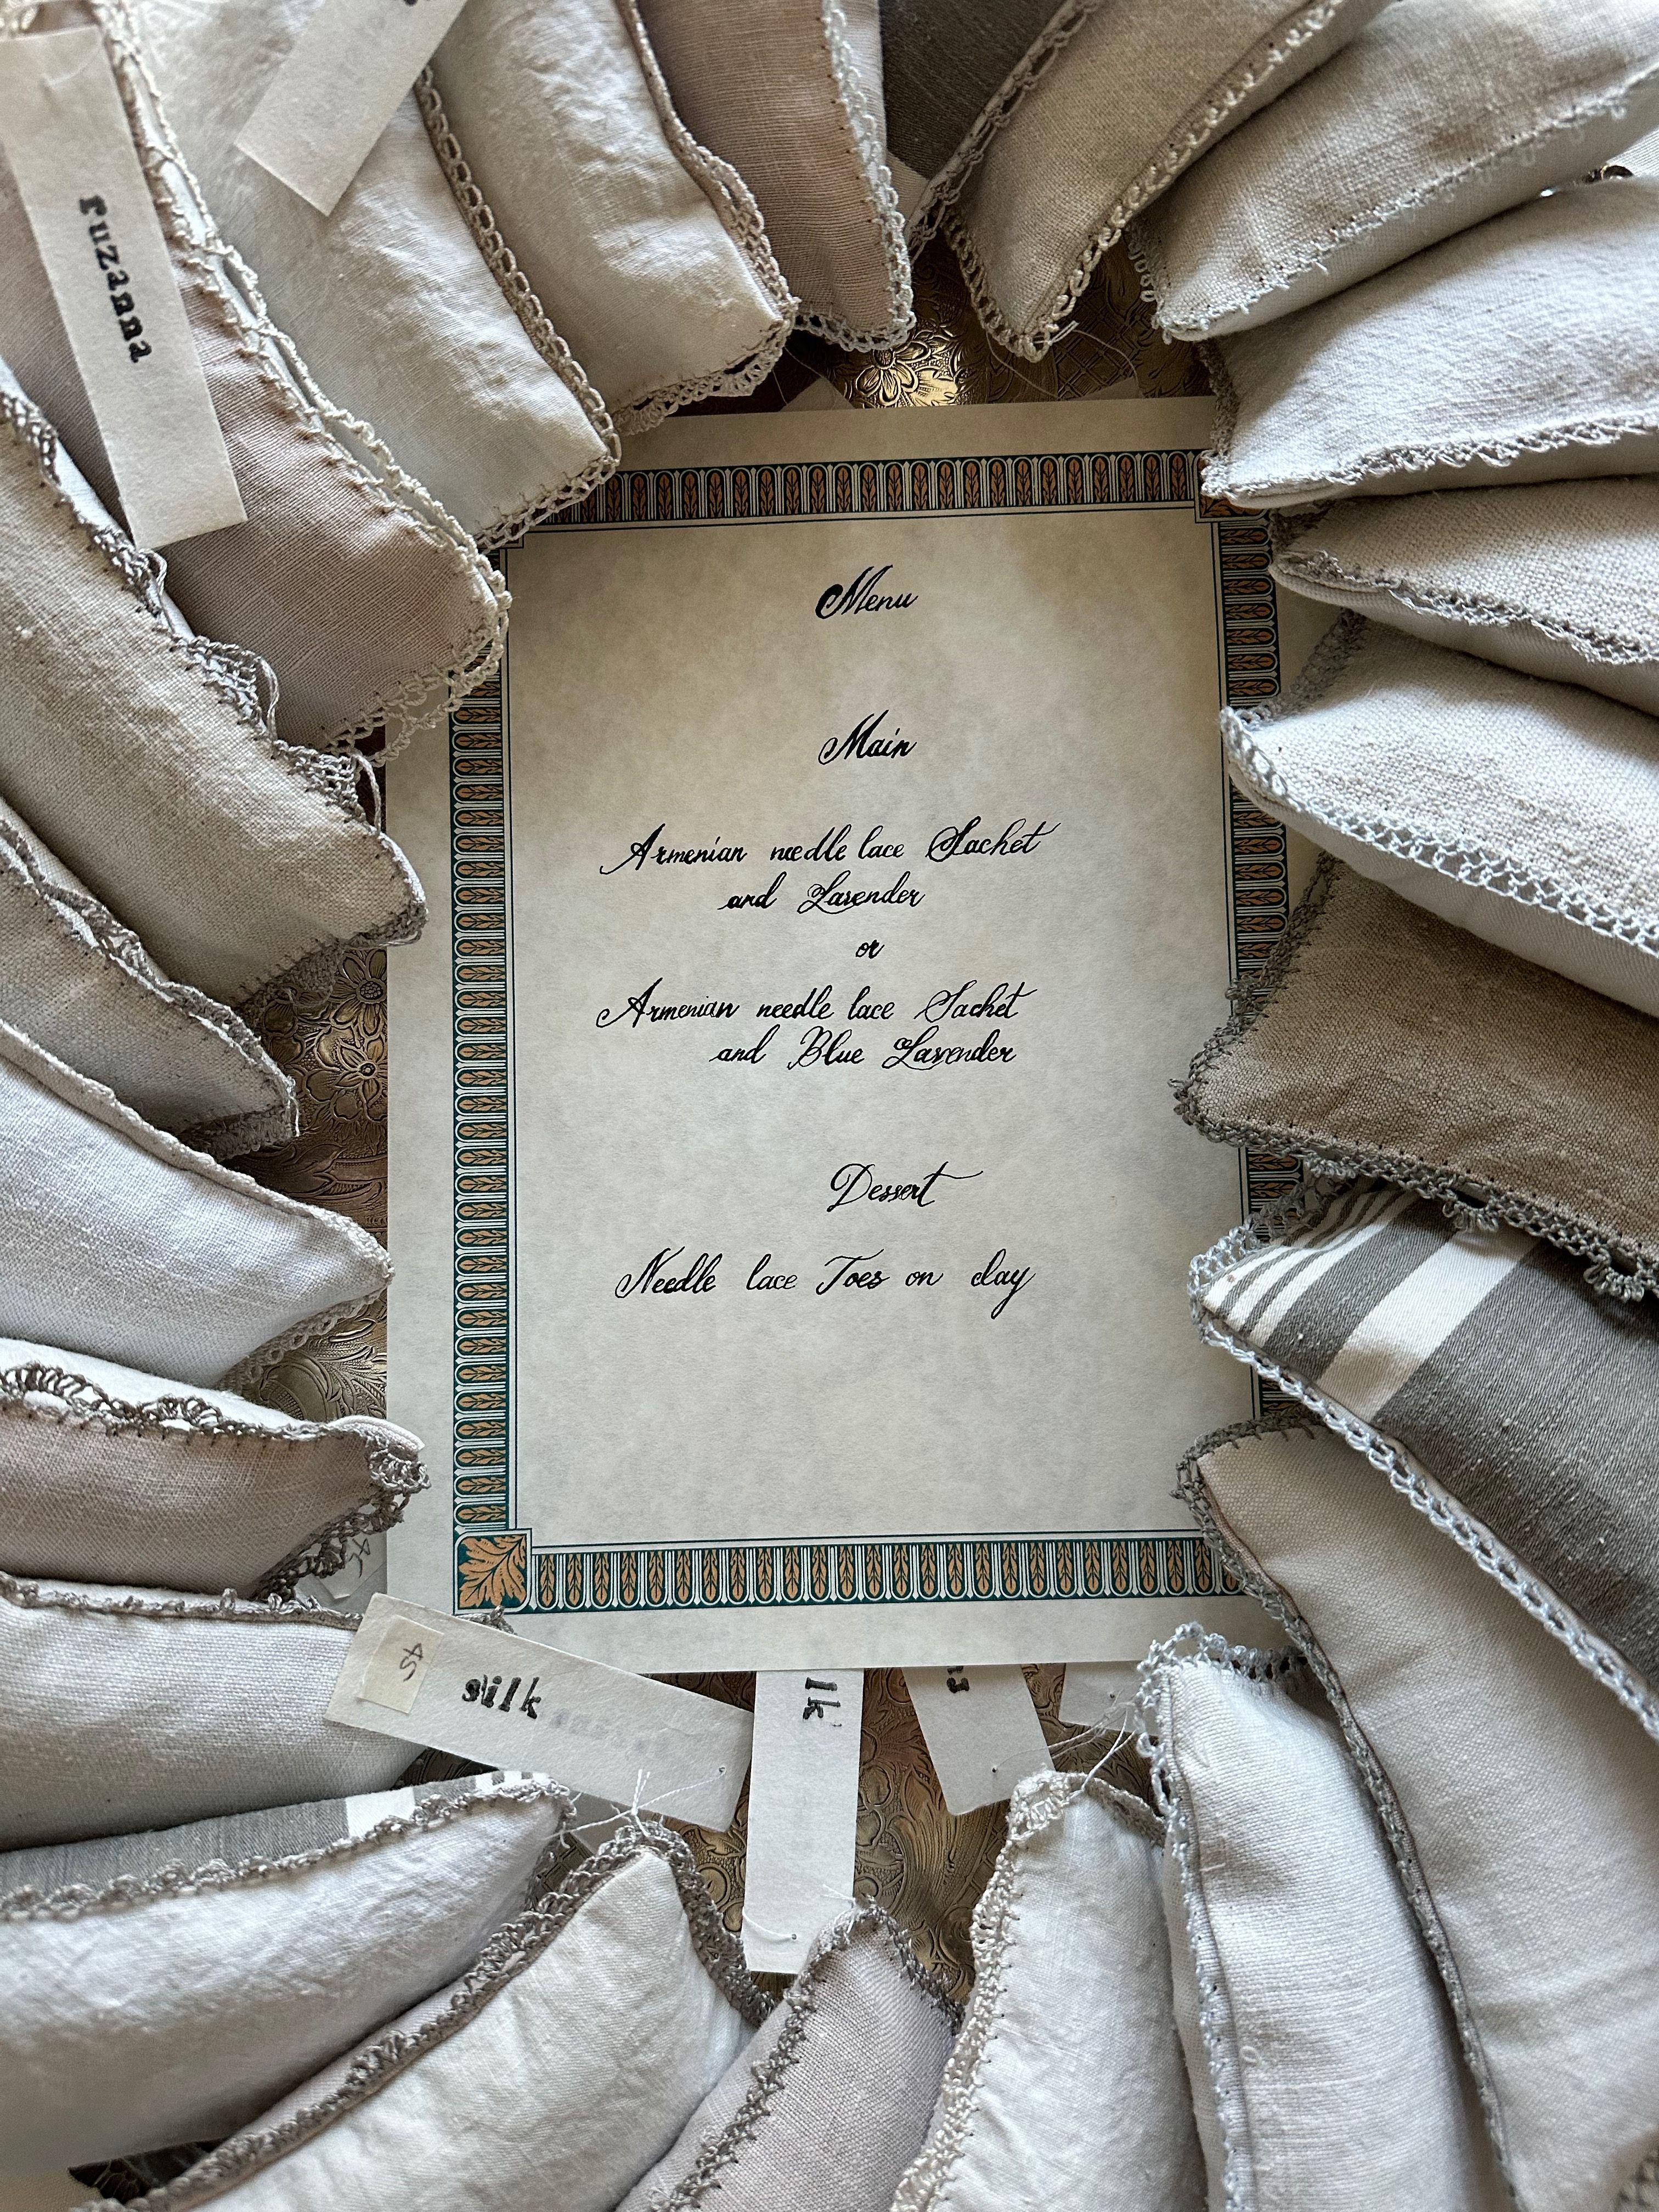 ruzanna
Menu
Main
Armenian needle lace Sachet
and Lavender
or
Armenian needle lace Sachet
and Blue Lavender
Dessert
Needle lace Toes on clay
45
silk
lk